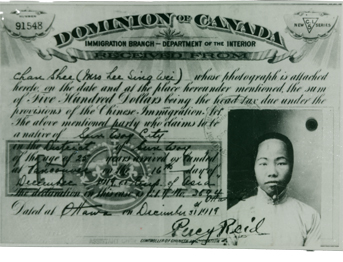 91548
C.I.5
NEW SERIES
DOMINION OF CANADA
IMMIGRATION BRANCH — DEPARTMENT OF THE INTERIOR
RECEIVED FROM
Chan Shee (Mrs Lee Sing Wei) whose photograph is attached
hereto, on the date and at the place hereunder mentioned, the sum
of Five Hundred Dollars being the head tax due under the
provisions of the Chinese Immigration Act.
The above mentioned party who claims to be
a native of Sun Woy City
in the District of Sun Woy
of the age of 25 years arrived or landed
at Vancouver on the 16th day of
December 1919
The declaration in this case is
Dated at Ottawa on December 31 1919
Percy Reid
CONTROLLER OF CHINESE